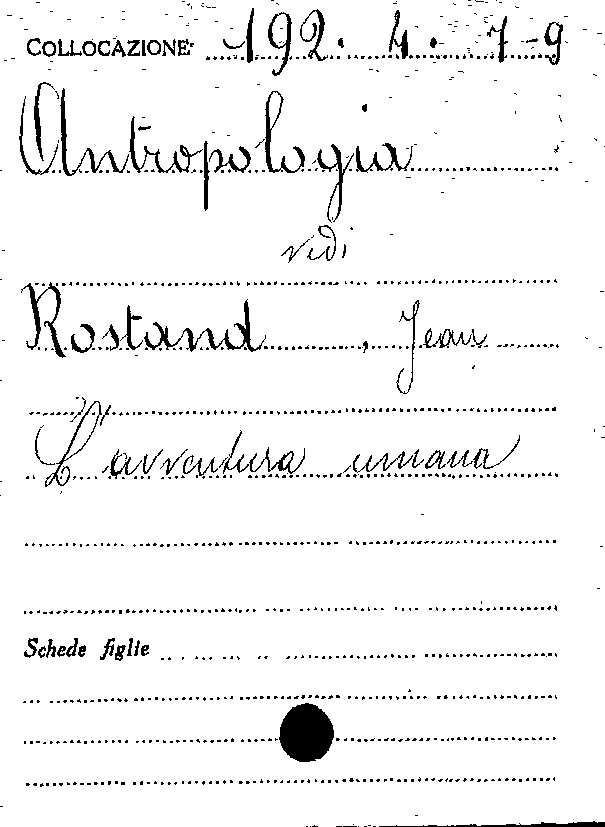 COLLOCAZIONE 192. 4. 7-9
Antropologia
vedi
Rostand, Jean
L'avventura umana
Schede figlie